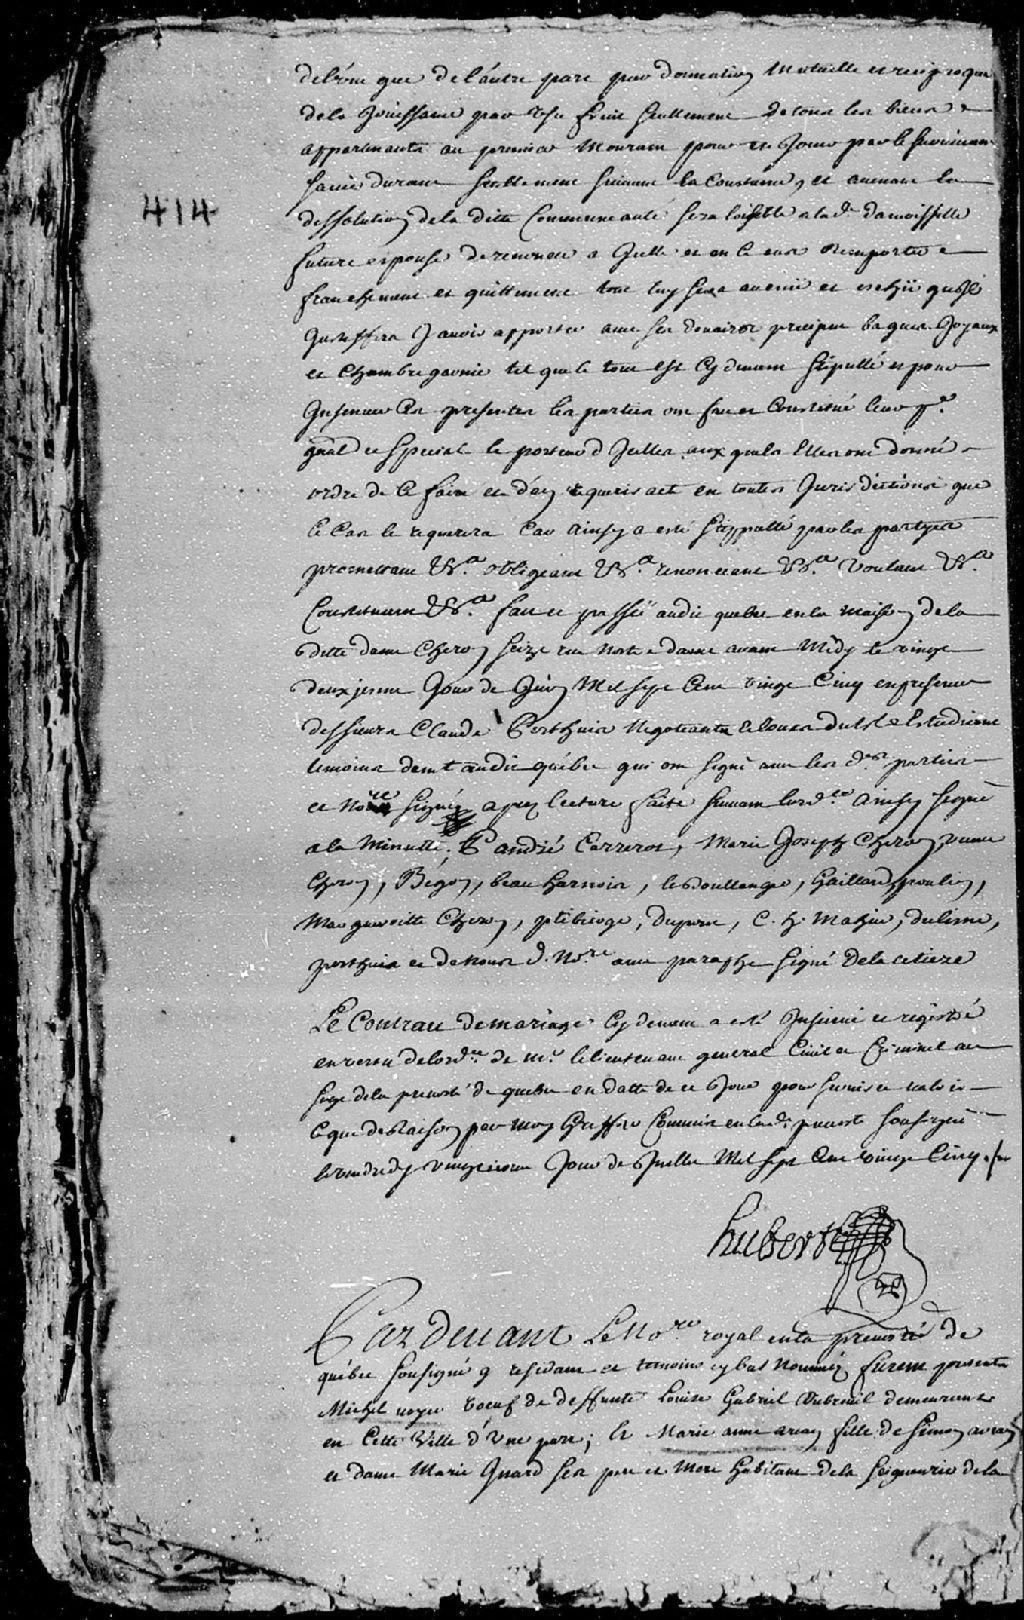 de l'une que de l'autre part par donnation Mutuelle et reciproque
de la Jouissance par usu fruit seullement de tous les biens
appartenants au premier Mourant pour en Jouir par le survivant
sa vie durant seullement suivant la Coustume, et avenant la
dissolution de la ditte Communeauté sera loisible a lad.e damoiselle
future espouse de renoncer a Jcelle et en ce cas remporter
franchement et quittement tout
Justiffira J avoir apporté avec ses douaires preciput bagues Joyaux
et Chambre garnie tel que le tout est Cy devant Stipullé et pour
Jnsinuer Ces presentes les parties ont fait et Constitué leur P.r
gñal et special le porteur d'Jcelles aux quels Elles ont donné
ordre de le faire et d'en requerir act en toutes Jurisdictions que
le Cas le requerera Car Ainsy a esté Stippullé par les partyes
promettant &c.a obligeant &c.a renonceant &c.a Voulant &c.a
Constituant &c.a fait et passé audit quebec en la Maison de la
ditte dame Cheron size rue notre dame avant Midy le vingt
deuxjeme Jour de Juin Mil sept Cent vingt Cinq en presence
des sieurs Claude Porthuis Negotiants
temoins demt audit québec qui ont signé avec les d.es parties
et No.re signé apres lecture faite suivant l'ord.ce ainsy signé
a la Minutte, P. andré Carrerot, Marie Joseph Cheron, veuve
Cheron, Begon, beauharnois, le Boullanger, Gaillard, poulin,
Margueritte Cheron, ptebriage, Dupuis, C. h. Mahiu, delisne,
porthuis et de nous d. No.re avec paraphe signé De la cetiere
414
Le Contrat de mariage Cy devant a eté Jnsinué et registré
en vertu de l'ord.ce de mr. le lieutenant general Civil et Criminel au
siege de la prevosté de quebec en datte de ce Jour pour servir et valoir
ce que de Raison par moy Greffier Commis en lad. prevosté soussigné
le vendredy Jour de Juillet Mil sept Cent vingt Cinq
hubert
Par devant Le No.re royal en la prevosté de
québec soussigné y residant et temoins cy bas Nommez furent presents
Michel veuf de deffunte Louise Gabriel Aubreuil demeurant
en Cette Ville d'Une part; & Marie anne avon fille de Simon avon
et dame Marie Jnard ses pere et Mere habitant de la Seigneurie de la